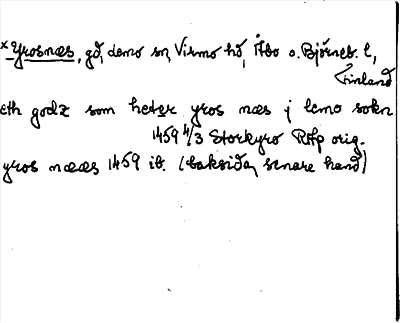 *Yrosnæs, gd, Lemo sn, Virmo hd, Åbo o. Björneb. l,
Finland
eth godz som heter yros næs j lemo sokn
1459 4/3 Storkyro RAp orig.
yros nææs 1459 ib. (baksidan, senare hand)